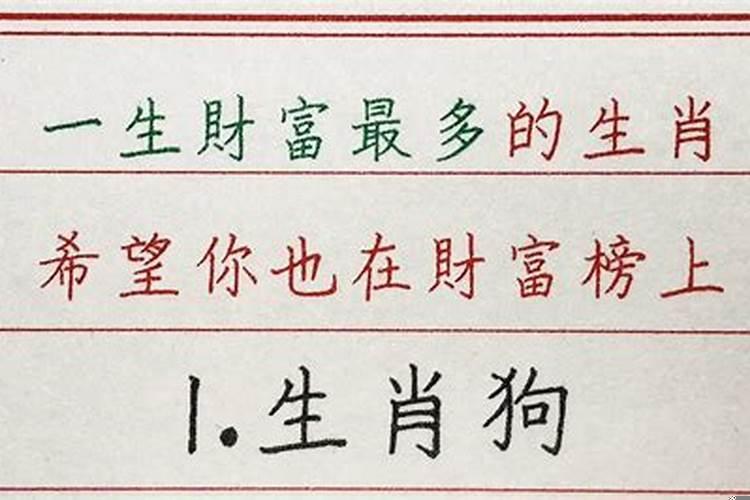 一生財富最多的生肖
希望你也在財富榜上
1.生肖狗